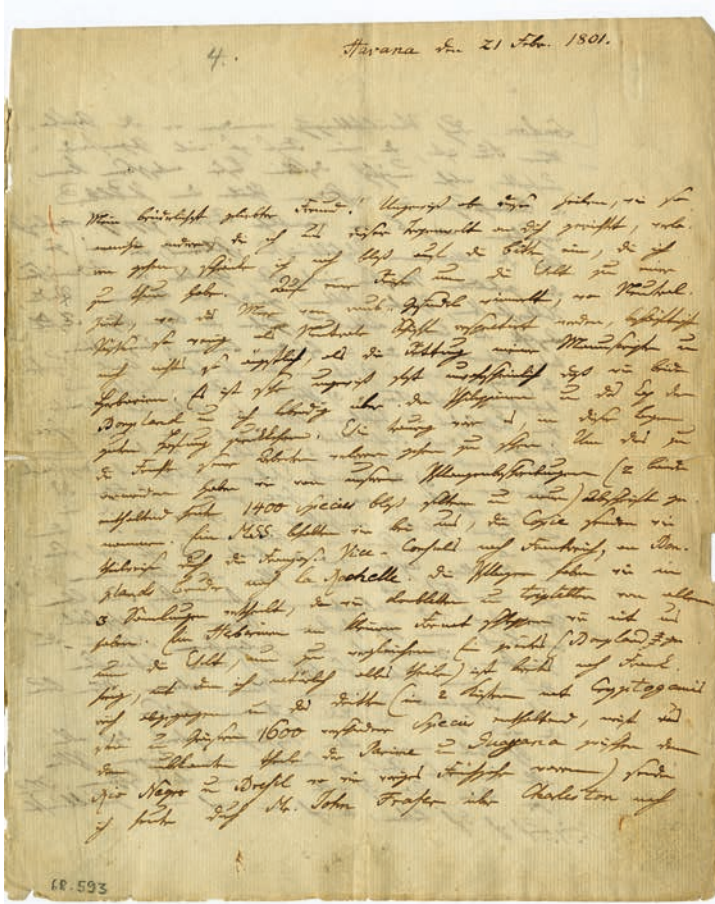 4.
Havana den 21 Febr. 1801.
Mein brüderlichst geliebter Freund! Ungewiß ob diese Zeilen, wie so
manche andere, die ich aus dieser Tropenwelt an dich gerichtet, verlo-
ren gehen, schränke ich mich bloß auf die Bitte ein, die ich
zu thun habe. Auf einer Reise um die Welt zu einer
Zeit, wo das Meer von Raub-Gesindel wimmelt, wo Neutral.
Pässe so wenig als Neutrale Schiffe respectirt werden, beschäftigt
mich nichts so ängstlich, als die Rettung meiner Manuscripte u
Herbarien. Es ist sehr ungewiß fast unwahrscheinlich daß wir beide
Bonpland u ich lebendig über die Philippinen u das Cap der
guten Hofnung zurückkehren. Wie traurig wäre es, in dieser Lage
die Früchte seiner Arbeiten verloren gehen zu sehen. Um dies zu
vermeiden haben wir von unseren Pflanzenbeschreibungen (2 Bände
enthaltend heute 1400 Species bloß seltene u neue) Abschrift ge-
nommen. Ein MSS. behalten wir bei uns, die Copie senden wir
theilweise durch die französ. Vice-Consuls nach Frankreich, an Bon-
plands Bruder nach la Rochelle. Die Pflanzen haben wir in
3 Samlungen vertheilt, da wir doubletten u tripletten von allem
haben. Ein Herbarium in kleinem Format schleppen wir mit uns
um die Welt, um zu vergleichen. Ein zweites (Bonpland
mit dem ich natürlich alles theile) ist bereits nach Frank-
reich abgegangen u das dritte (in 2 Kisten mit Cryptogamis
u Gräsern 1600 verschiedene Species enthaltend, meist aus
dem unbekannten Theile der Parime u Guayana zwischen dem
Rio Negro u Brasil wo wir voriges Frühjahr waren) sende
ich heute durch Mr. John Fraser über Charleston nach
68.593